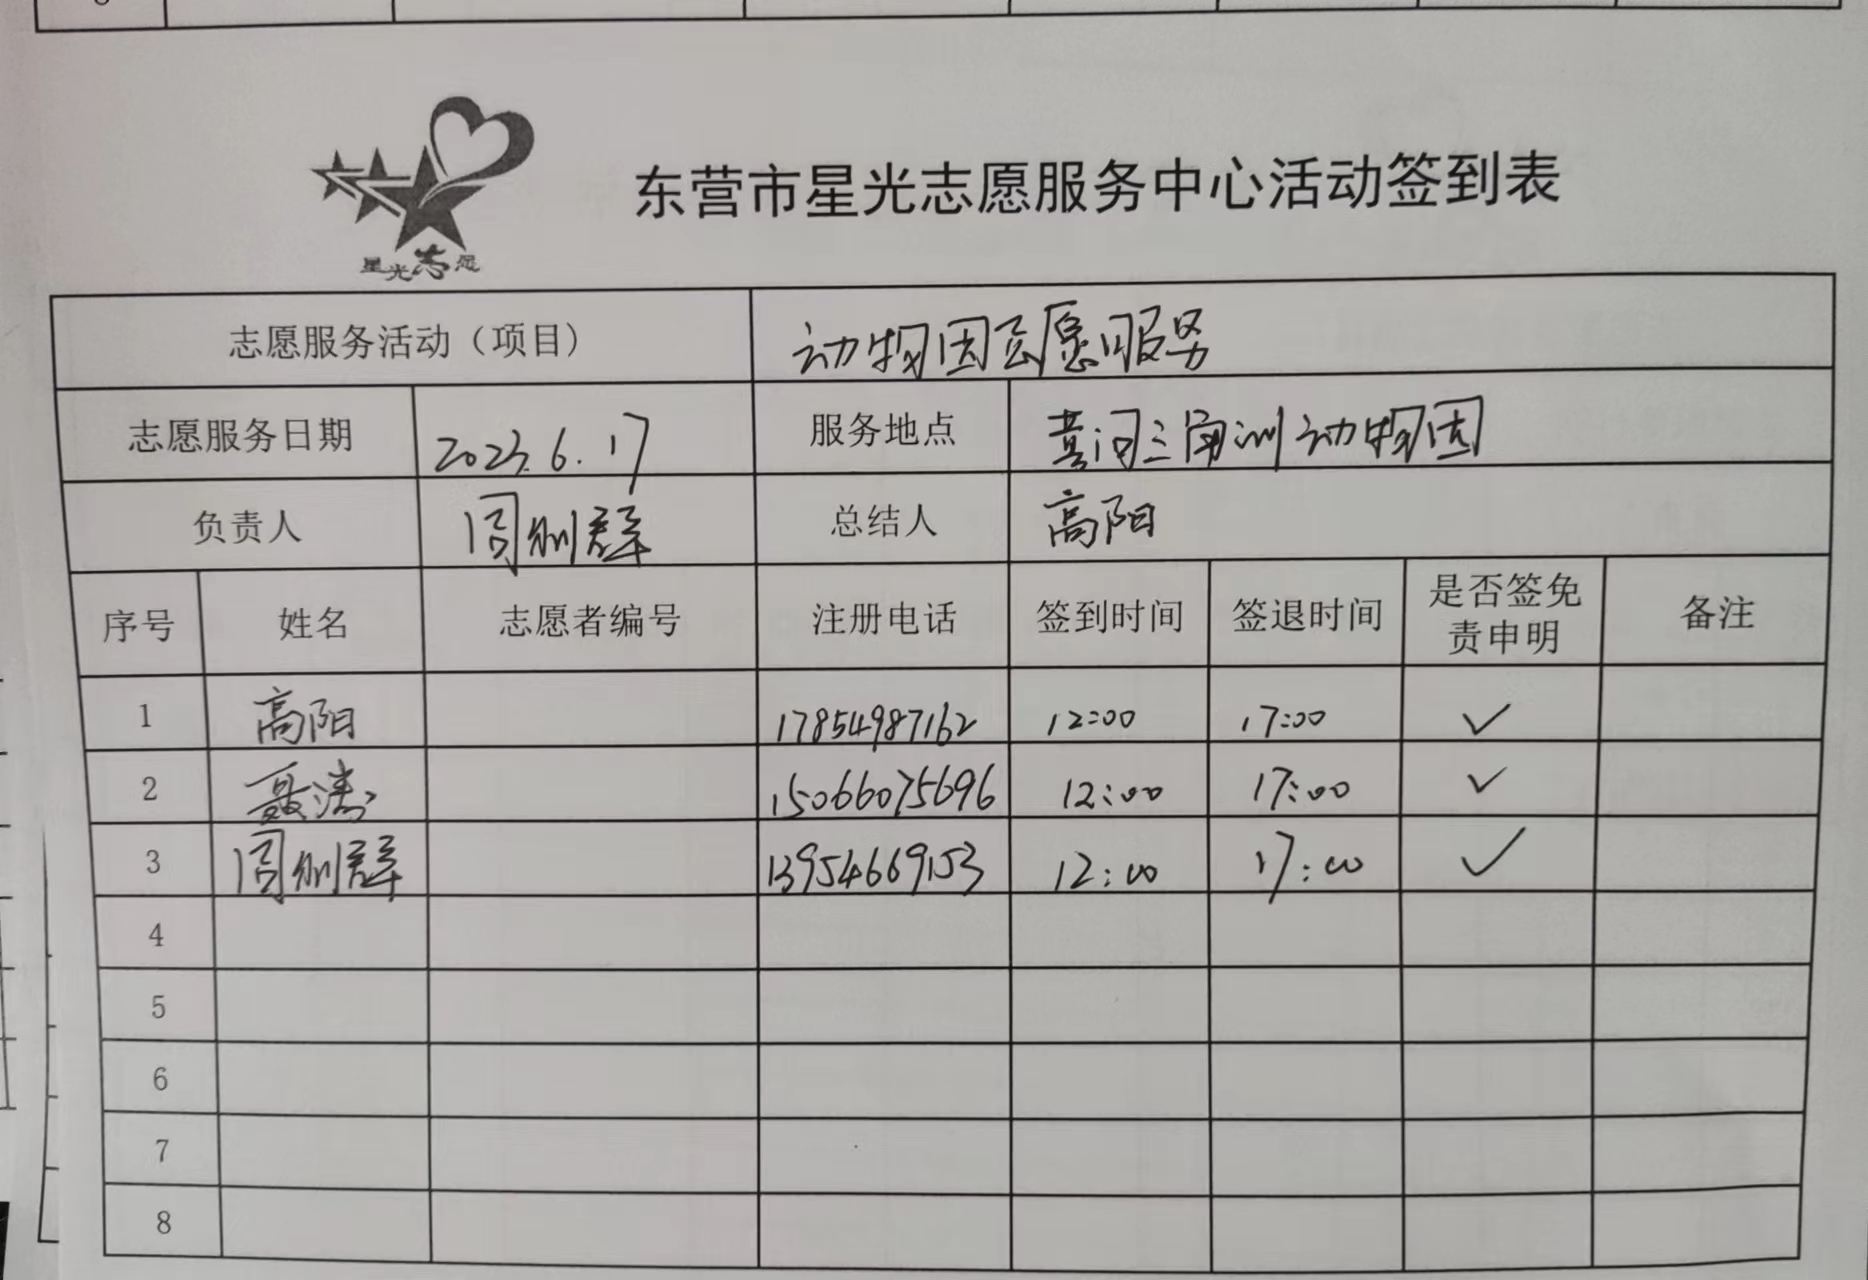 星光志愿
东营市星光志愿服务中心活动签到表
志愿服务活动（项目） 动物园志愿服务
志愿服务日期 2023.6.17 服务地点 黄河三角洲动物园
负责人 周刚群 总结人 高阳
序号 姓名 志愿者编号 注册电话 签到时间 签退时间 是否签免责申明 备注
1 高阳 17854987162 12:00 17:00 ✓
2 聂涛 15066075696 12:00 17:00 ✓
3 周刚群 13954669153 12:00 17:00 ✓
4
5
6
7
8